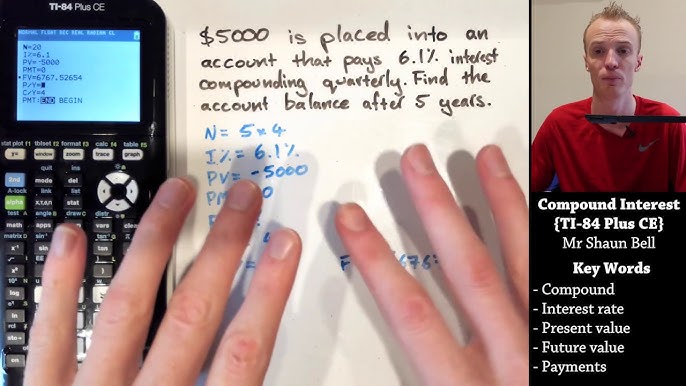 TI-84 Plus CE
NORMAL FLOAT DEC REAL RADIAN CL
N=20
I%=6.1
PV=-5000
PMT=0
FV=6767.52654
P/Y=
C/Y=4
PMT:END BEGIN
stat plot f1 tblset f2 format f3 calc f4 table f5
y= window zoom trace graph
quit ins
2nd mode del
A-lock link list
alpha X,T,θ,n stat
test angle draw distr
math apps prgm vars clear
x⁻¹ sin
x²
log
ln
rcl
sto
off
on
$5000 is placed into an
account that pays 6.1% interest
compounding quarterly. Find the
account balance after 5 years.
N= 5×4
I%= 6.1%
PV= -5000
Compound Interest
{TI-84 Plus CE}
Mr Shaun Bell
Key Words
- Compound
- Interest rate
- Present value
- Future value
- Payments